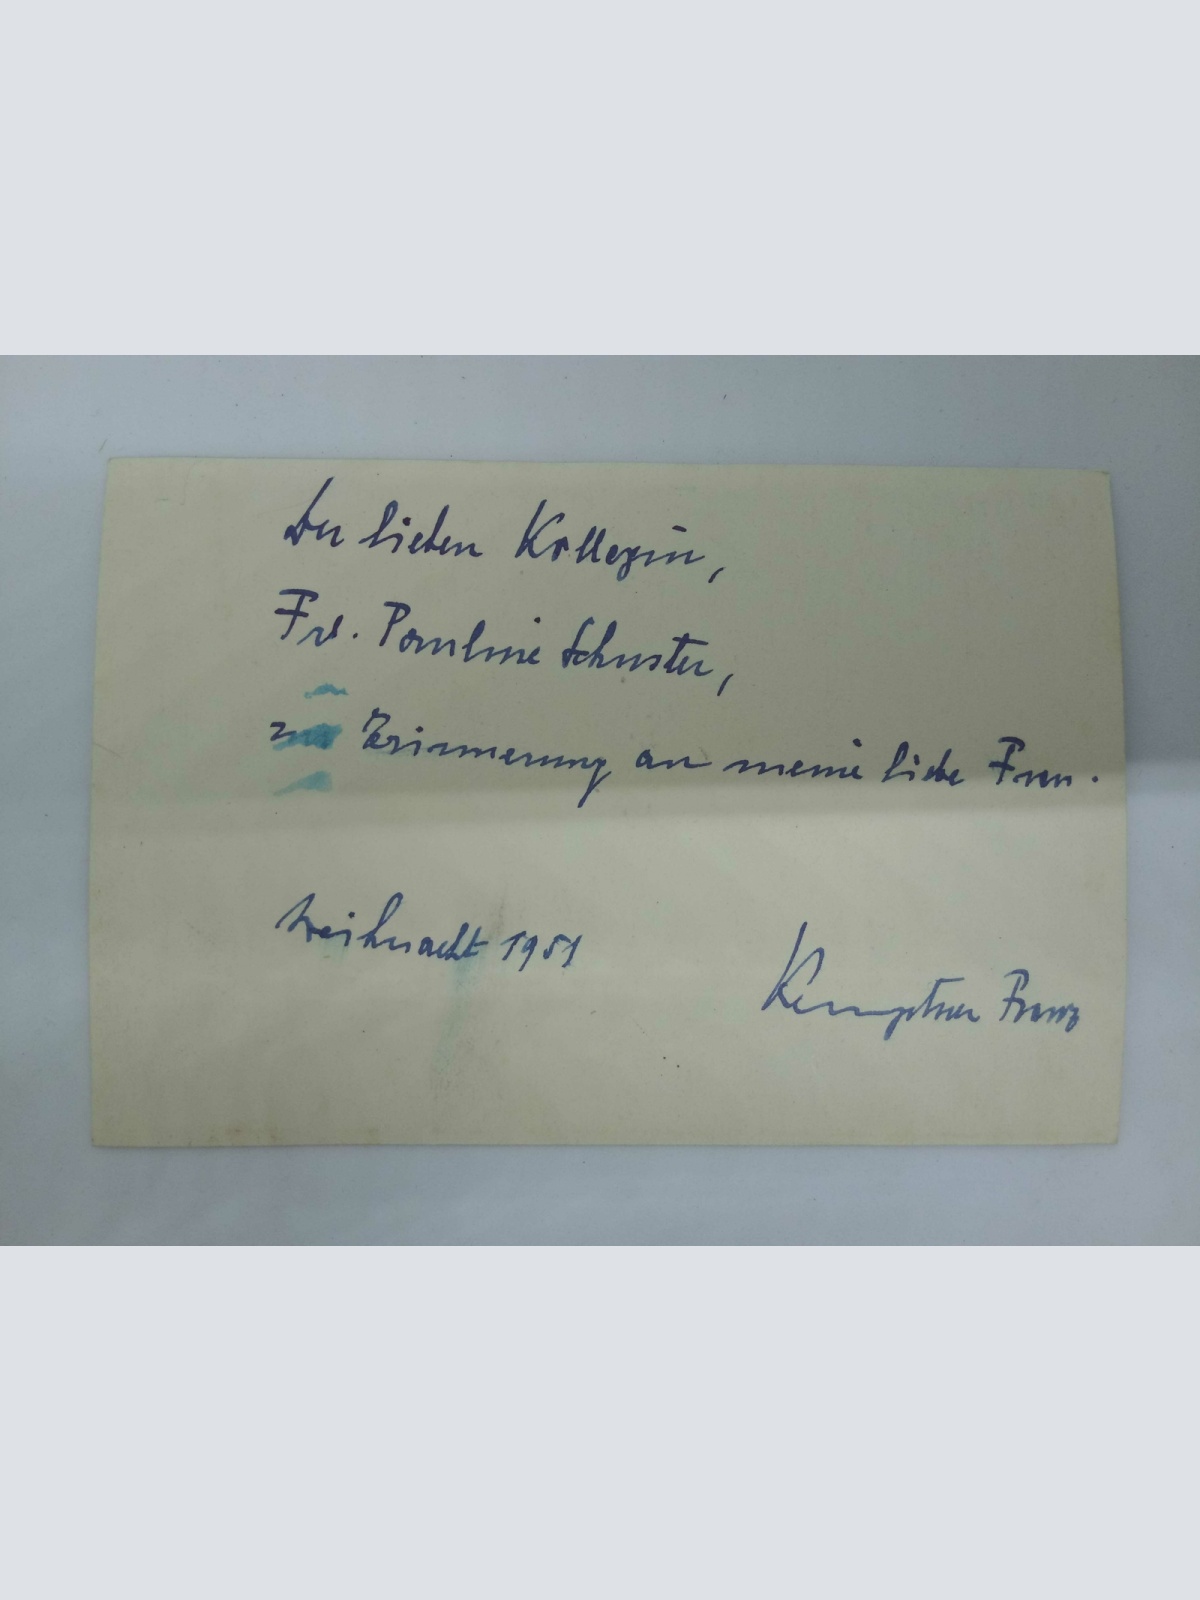 Der lieben Kollegin,
Frl. Pauline Schuster,
zur Erinnerung an meine liebe Frau.
Weihnacht 1951
Franz